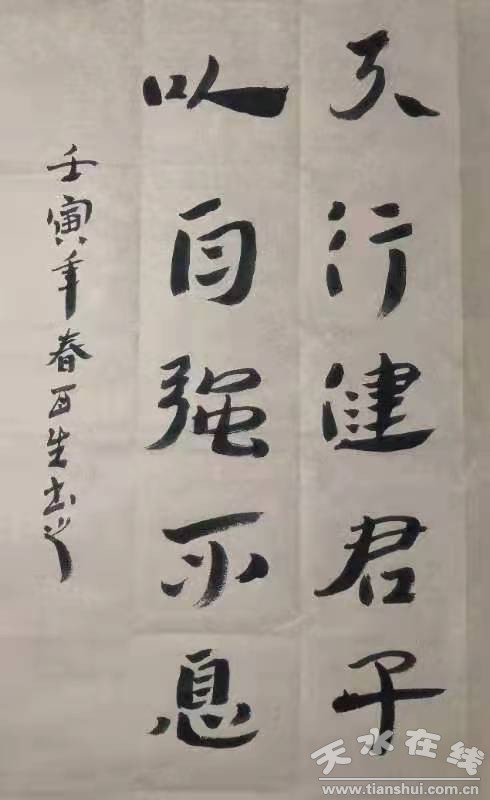 天行健君子
以自强不息
壬寅年春百生书
天水在线
www.tianshui.com.cn